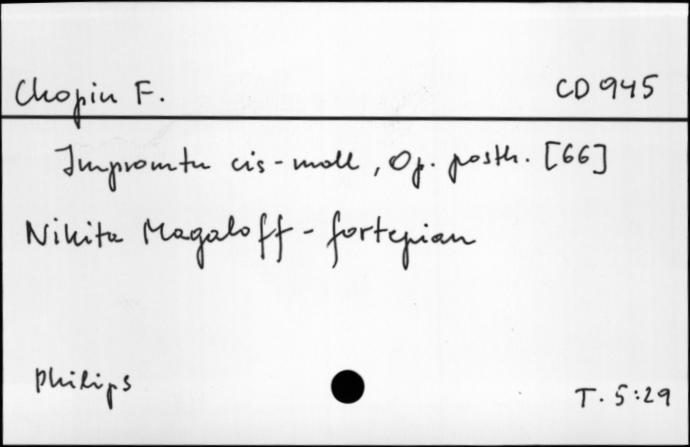 Chopin F. CD 945
Impromtu cis-moll, Op. posth. [66]
Nikita Magaloff - fortepian
Philips T. 5:29